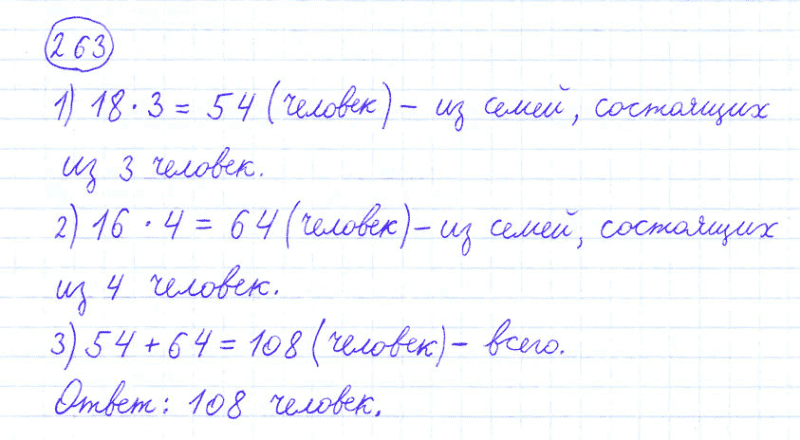 263
1) 18 · 3 = 54 (человек) – из семей, состоящих
из 3 человек.
2) 16 · 4 = 64 (человек) – из семей, состоящих
из 4 человек.
3) 54 + 64 = 108 (человек) – всего.
Ответ: 108 человек.